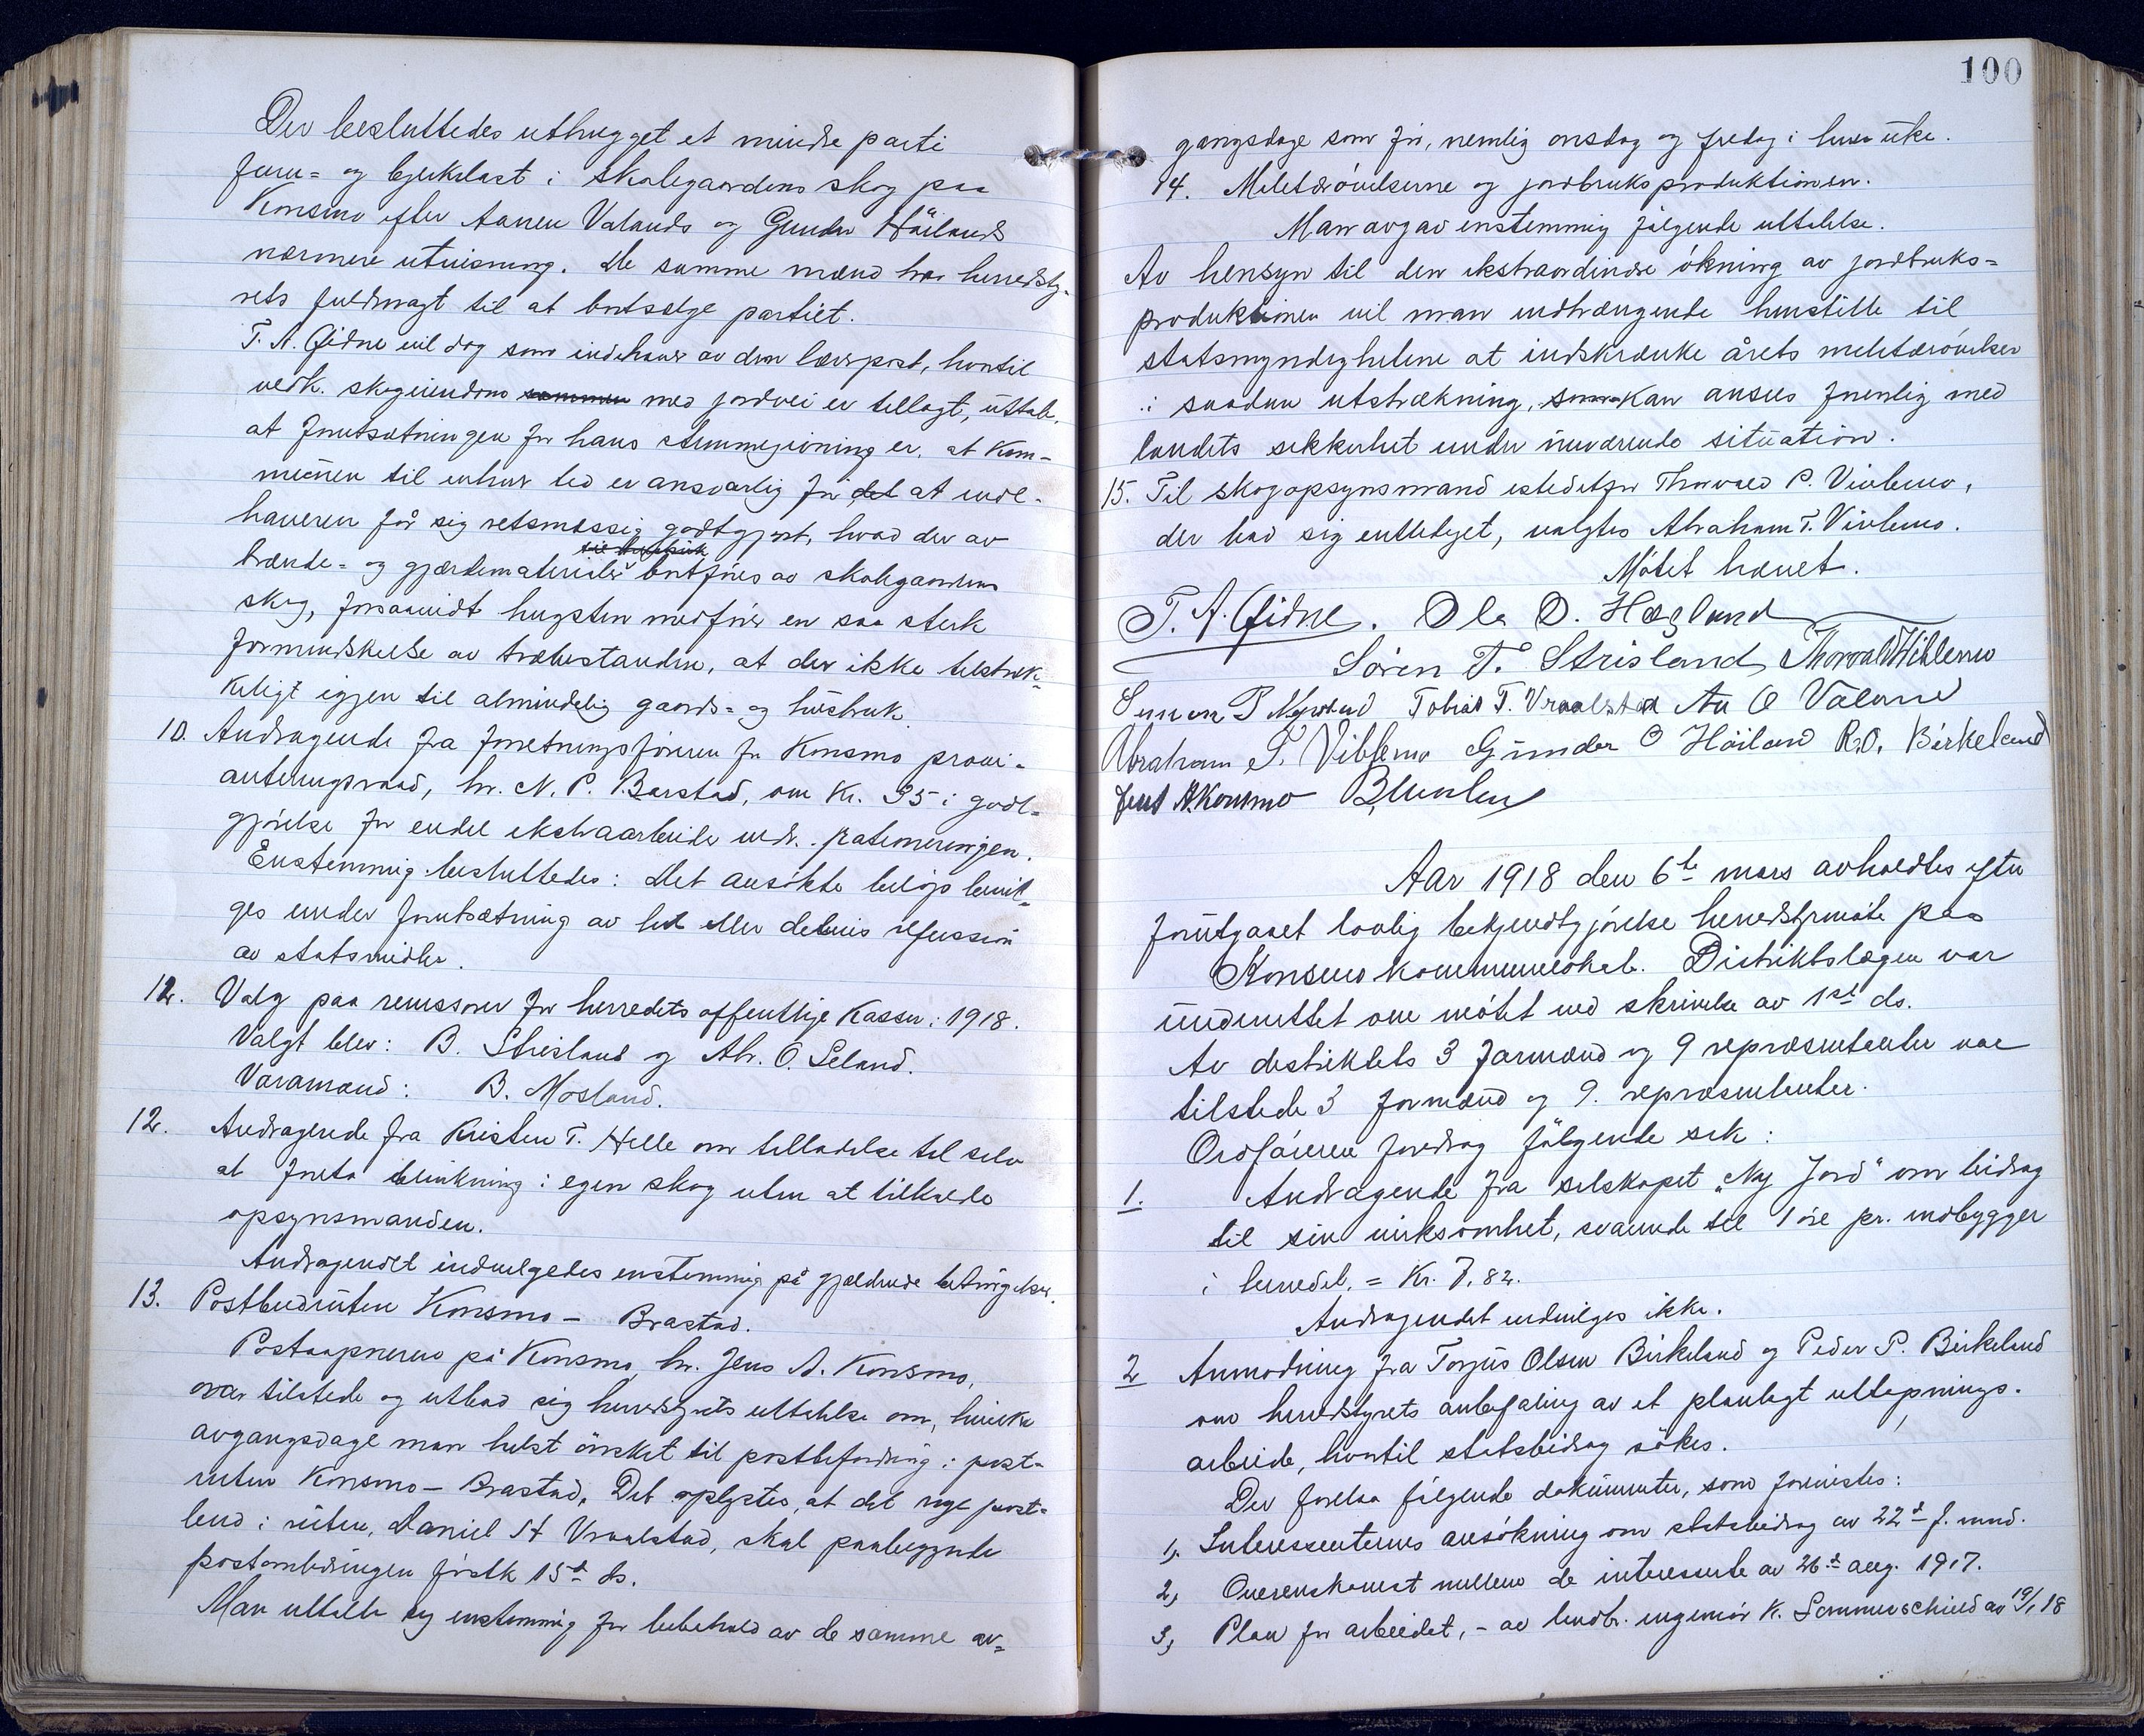 Der besluttedes uthugget et mindre parti
furu- og bjerkelast i skolegaardens skog paa
Konsmo efter Aanen Valands og Gunder Höilands
nærmere utvisning. De samme mænd har herredsty-
rets fuldmagt til at bortsælge partiet.
T. A. Eidne vil dog som indehaver av den lærerpost, hvortil
vedk. skogeiendom sammen med jordvei er tillagt, uttale,
at forutsætningen for hans stemmegivning er, at kom-
munen til enhver tid er ansvarlig for det at inde-
haveren får sig retsmæssig godtgjort, hvad der av
til husbruk
brænde- og gjærdematerialer bortföres av skolegaardens
skog, forsaavidt hugsten medförer en saa sterk
formindskelse av træbestanden, at der ikke tilstræk-
keligt igjen til almindelig gaards- og husbruk
10. Andragende fra forretningsföreren for Konsmo provi-
anteringsraad, hr. N. P. Barstad, om Kr. 35 i godt-
gjörelse for endel ekstraarbeide vedr. rationeringen.
Enstemmig besluttedes: Det ansökte belöp bevil-
ges under forutsætning av hel eller delvis refusion
av statsmidler.
12. Valg paa revisorer for herredets offentlige kasser i 1918.
Valgt blev: B. Strisland og Abr. O. Seland.
Varamand: B. Mosland.
12. Andragende fra Kristen T. Helle om tilladelse til selv
at foreta blinkning i egen skog uten at tilkalde
opsynsmanden.
Andragendet indvilgedes enstemmig på gjældende betingelser.
13. Postbudruten Konsmo - Brastad.
Postaapneren på Konsmo, hr. Jens A. Konsmo,
var tilstede og utbad sig herredstyrets uttalelse om, hvilke
avgangsdage man helst önsket til postbefordring i post-
ruten Konsmo - Brastad. Det oplystes, at det nye post-
bud i ruten, Daniel St Vraalstad, skal paabegynde
postombæringen förstk 15de ds.
Man uttalte sig enstemmig for bibehold av de samme av-
100
gangsdage som för, nemlig onsdag og fredag i hver uke.
14. Militærövelserne og jordbruksproduktionen.
Man avgav enstemmig fölgende uttalelse.
Av hensyn til den ekstraordinære ökning av jordbruks-
produktionen vil man indtrængende henstille til
statsmyndighetene at indskrænke årets militærövelser
i saadan utstrækning, som kan ansees forenlig med
landets sikkerhet under nuværende situation.
15. Til skogopsynsmand istedetfor Thorvald P. Viblemo,
der bad sig entlediget, valgtes Abraham T. Viblemo.
Mötet hævet.
T. A. Eidne. Ola O. Hægland
Sören T. Strisland Thorvald Viblemo
Simon P Tobias T. Vraalstad Aa O Valand
Abraham T. Viblemo Gunder O Höiland R. O. Birkeland
Jens A. Konsmo
Aar 1918 den 6te mars avholdtes efter
forutgaaet lovlig bekjendtgjörelse herredstyrmöte paa
Konsmo kommunelokale. Distriktslægen var
underrettet om mötet ved skrivelse av 1ste ds.
Av distriktets 3 formænd og 9 repræsentanter var
tilstede 3 formænd og 9. repræsentanter.
Ordföreren foredrog fölgende sak:
1. Andragende fra selskapet "Ny Jord" om bidrag
til sin virksomhet, svarende til 1 öre pr. indbygger
i herredet. = Kr. 7,82.
Andragendet indvilges ikke.
2 Anmodning fra Torjus Olsen Birkeland og Peder P. Birkeland
om herredstyrets anbefaling av et planlagt uttapnings-
arbeide, hvortil statsbidrag sökes.
Der forelaa fölgende dokumenter, som forevistes:
1, Interessenternes ansökning om statsbidrag av 22de f. mnd.
2, Overenskomst mellem de interesserte av 26de aug. 1917.
3, Plan for arbeidet, - av landbr. ingeniör K. Sommerschield av 19/1 18